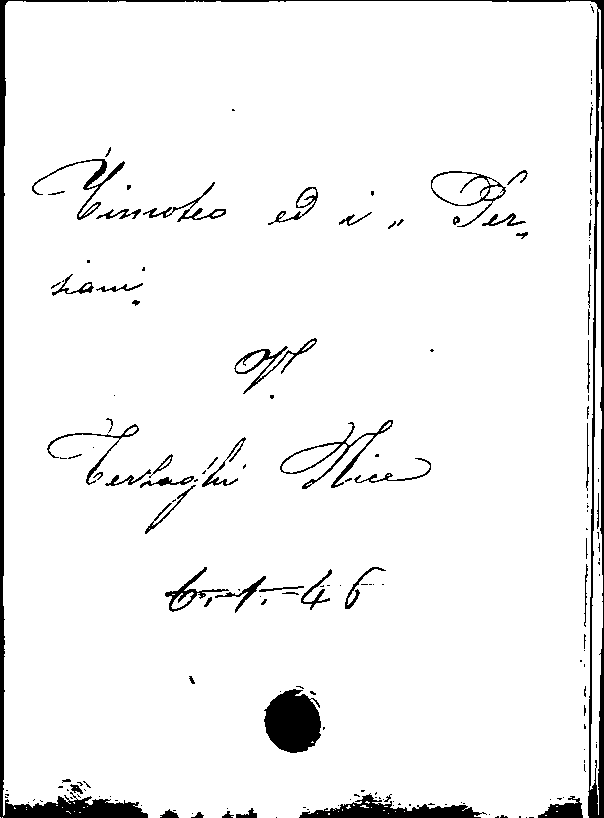 Timoteo ed i „ Per„
siani„
V.
Terzaghi Nice
6.1.46